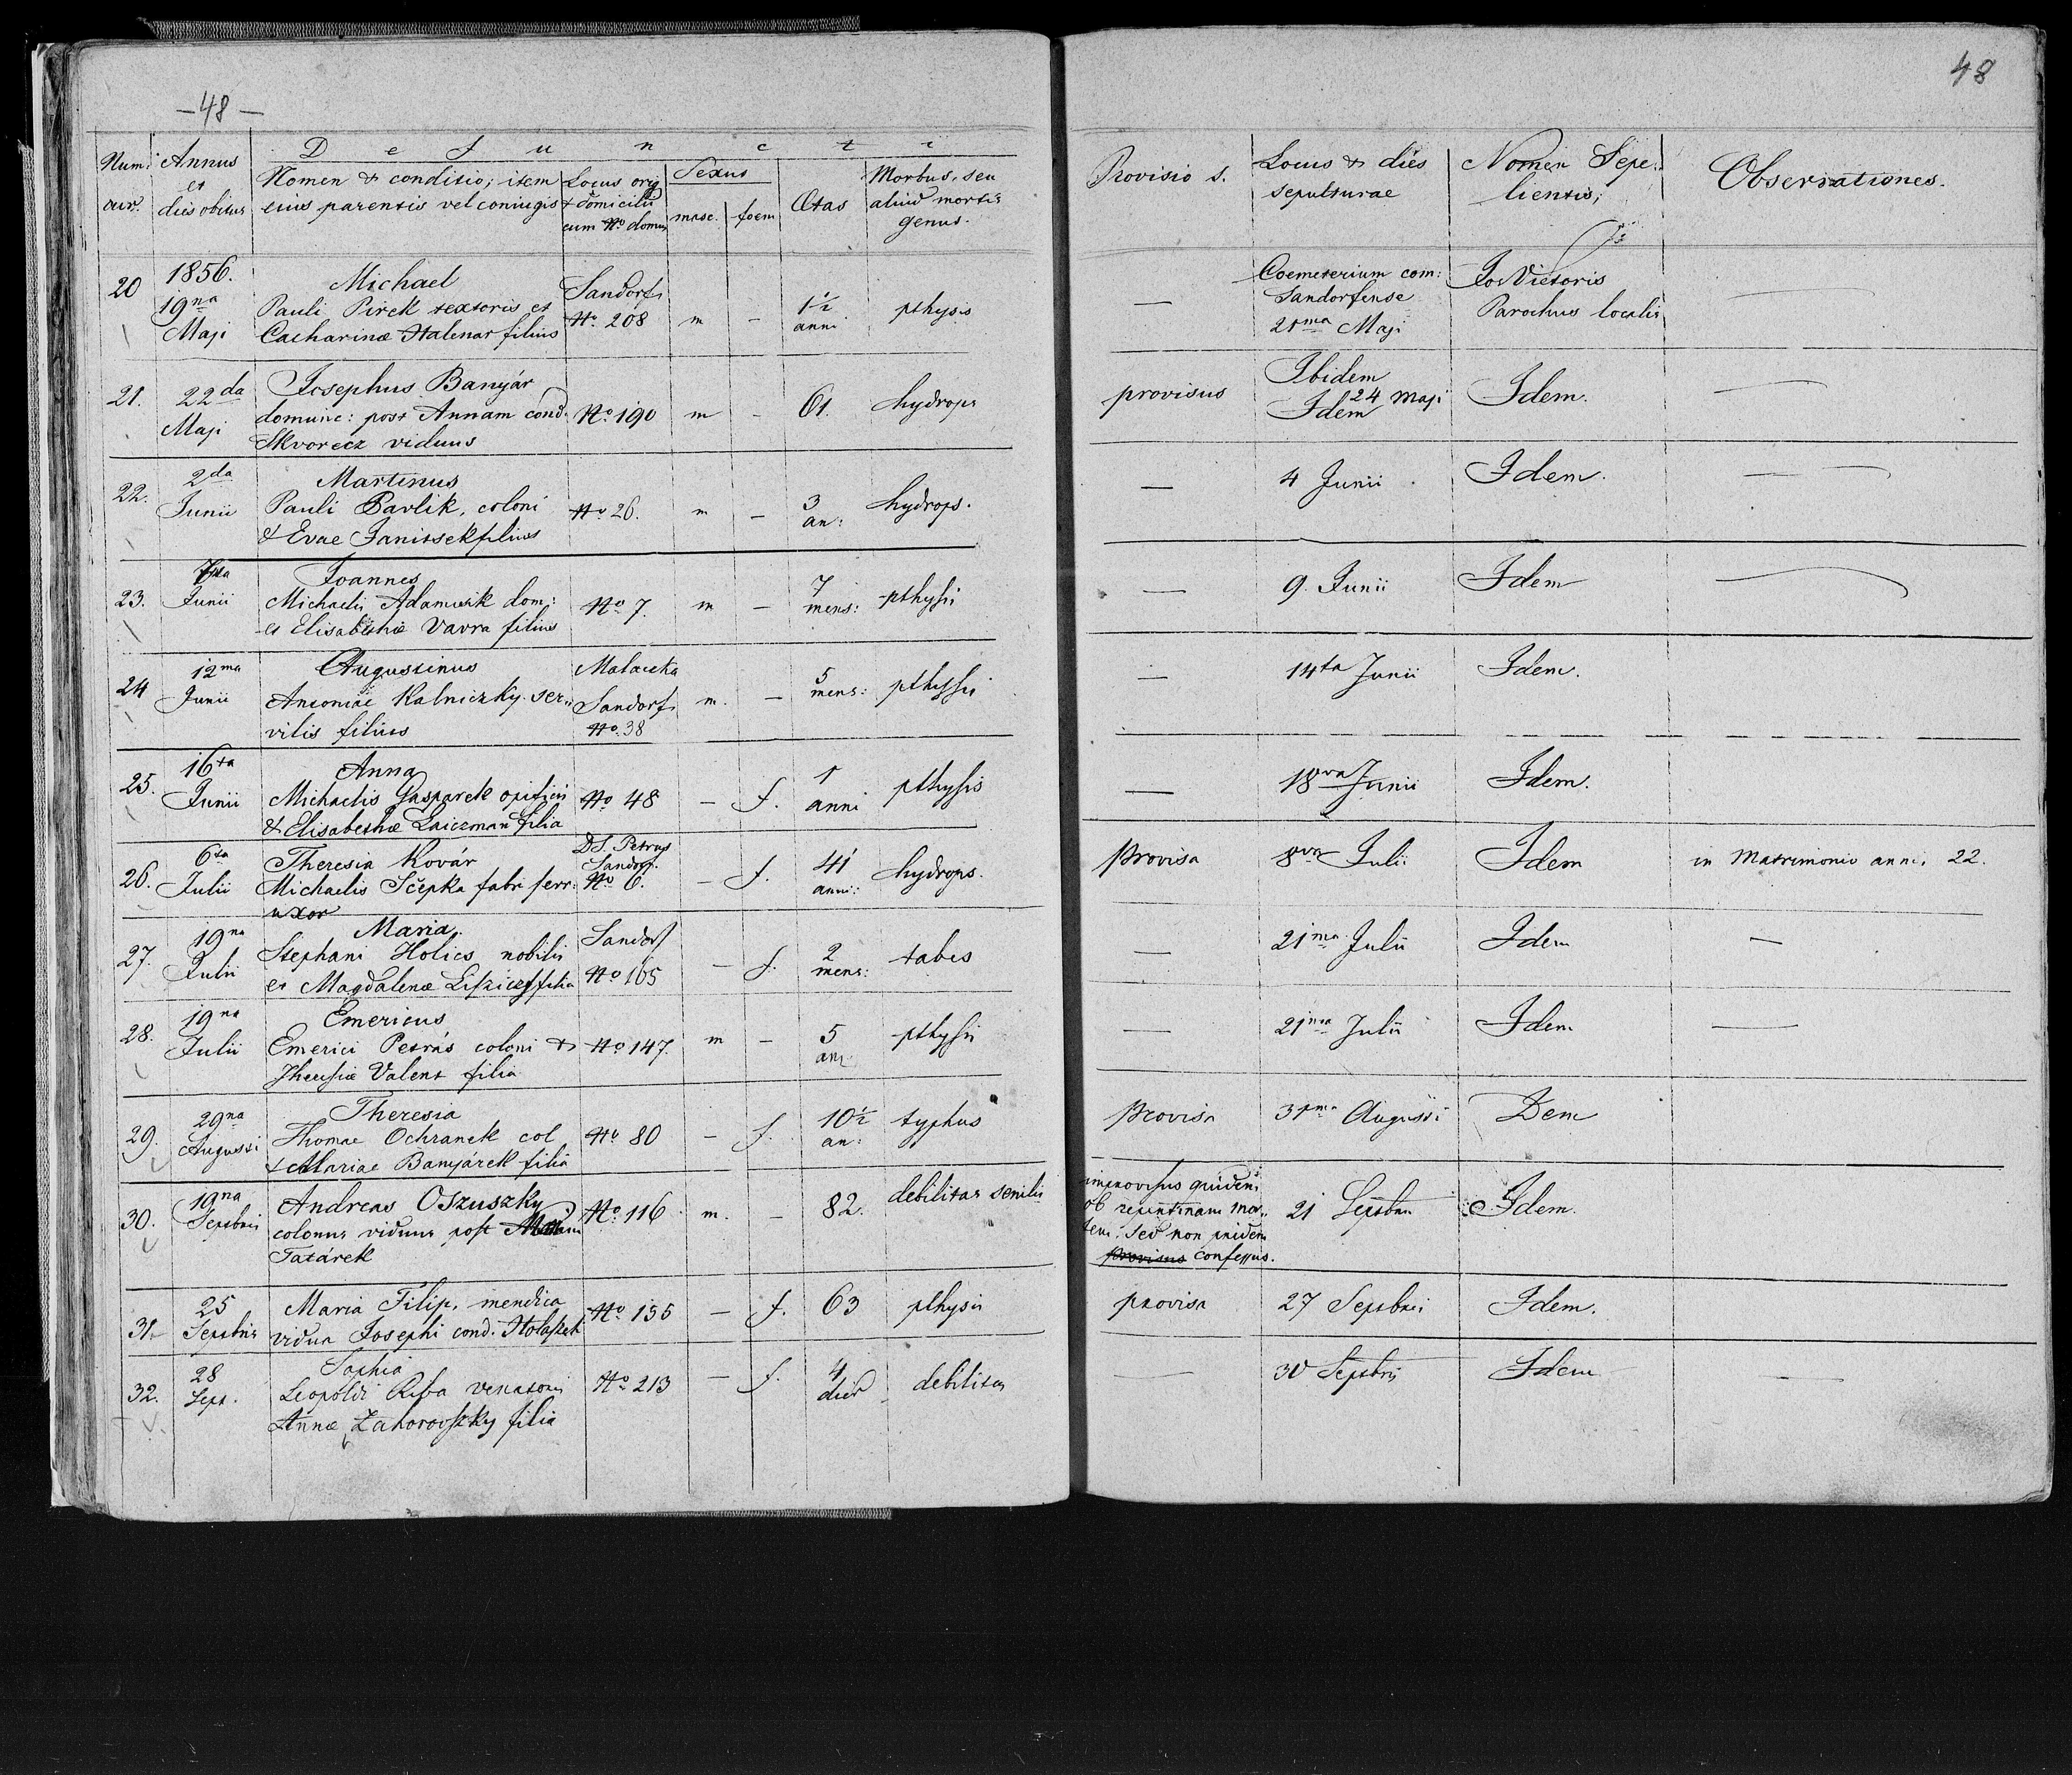 —48—
48
Num:
cur.
Annus
et
dies obitus
Defuncti
Nomen & conditio; item
eius parentis vel coniugis
Locus orig
& domicilii
cum No domus
Sexus
masc. foem
Etas
Morbus, seu
aliud mortis
genus.
Provisio s.
Locus & dies
sepulturae
Nomen Sepe:
lientis;
Observationes.
20 1856.
19na
Maji
Michael
Pauli Pirek textoris et
Catharinæ Halenar filius
Sandorf
No. 208 m — 1½
anni
pthysis
—
Coemeterium com:
Sandorfense
21ma Maji
Jos Vietoris
Parochus localis
21. 22da
Maji
Josephus Banyár
domunc: post Annam cond.
Skvorecz viduus
No 190 m — 61. hydrops
provisus
Ibidem
24 Maji
Idem
Idem.
22. 2da
Junii
Martinus
Pauli Pavlik, coloni
& Evae Janitsek filius
No 26. m — 3
an:
hydrops.
— 4 Junii Idem.
23. 7ma
Junii
Joannes
Michaelis Adamusik dom:
et Elisabethæ Vavra filius
No 7. m — 7
mens:
pthysis
— 9. Junii Idem
24 12ma
Junii
Augustinus
Antoniae Kalniczky ser:
vilis filius
Malaczka
Sandorf
No. 38
m. — 5
mens:
pthysis
— 14ta Junii Idem.
25. 16ta
Junii
Anna
Michaelis Gasparek opificis
& Elisabethæ Laiczman filia
No 48 — f. 1
anni
pthysis
— 18va Junii Idem.
26. 6ta
Julii
Theresia Kovár
Michaelis Sčepka fabri ferr:
uxor
D.S. Petrus
Sandorf.
No 6.
— f. 41
anni:
hydrops.
provisa 8va Julii Idem in Matrimonio anni, 22.
27. 19na
Julii
Maria.
Stephani Holics nobilis
et Magdalenæ filia
Sandorf
No 165
— f. 2
mens:
tabes
— 21ma Julii Idem —
28. 19na
Julii
Emericus
Emerici Petrás coloni &
Theresiæ Valent filia
No 147. m — 5
an:
pthysis
— 21ma Julii Idem —
29. 29na
Augusti
Theresia
Thomae Ochranek col
& Mariae Banyárek filia
No 80 — f. 10½
an:
typhus
provisa 31ma Augusti Idem
30. 19na
Septbris
Andreas Oszuszky
colonus viduus post
Tatárek
No. 116 m. — 82. debilitas senilis
improvisus quidem
ob repentinam mor:
tem. sed non pridem
provisus confessus.
21 Septbris Idem.
31. 25
Septbris
Maria Filip, mendica
vidua Josephi cond. Holassek
No 155 — f. 63 pthysis
provisa 27 Septbris Idem.
32. 28
Sept.
Sophia
Leopoldi Riba venatoris
Annæ Zahorovszky filia
No. 213 — f. 4
dies
debilitas
— 30 Septbris Idem —